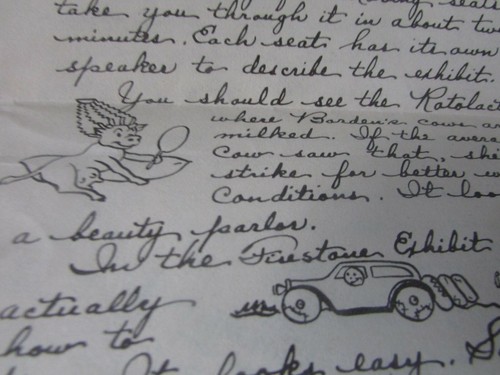 take you through it in about two
minutes. Each seat has its own
speaker to describe the exhibit.
You should see the Rotolac
where Borden's cows ar
milked. If the avera
cow saw that, she
strike for better w
conditions. It loo
a beauty parlor.
In the Firestone Exhibit
actually
how to
It looks easy. S